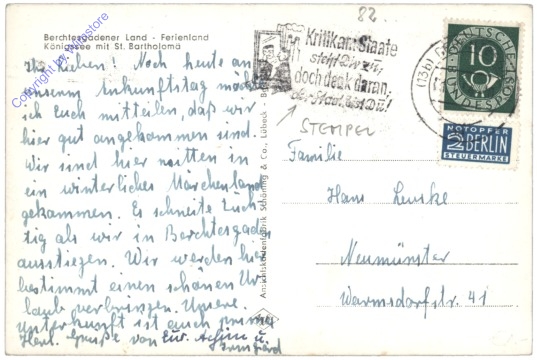 82.
Berchtesgadener Land - Ferienland
Königssee mit St. Bartholomä
Copyright by: ansichtskartenstore
Ihr Lieben! Noch heute an
unserm Ankunftstag möcht
ich Euch mitteilen, daß wir
hier gut angekommen sind.
Wir sind hier mitten in
ein winterliches Märchenland
gekommen. Es schneite tüch-
tig als wir in Berchtesgaden
ausstiegen. Wir werden hier
bestimmt einen schönen Ur-
laub verbringen. Unsere
Unterkunft ist auch prima
Herl. Grüße von Eur. Achim u.
Ansichtskartenfabrik Schöning & Co., Lübeck
Kritik am Staate
steht Dir zu,
doch denk daran,
der Staat bist Du!
STEMPEL
(13b)
DEUTSCHE
BUNDESPOST
10
NOTOPFER
2 BERLIN
STEUERMARKE
Familie
Hans Lemke
Neumünster
Warmsdorfstr. 41